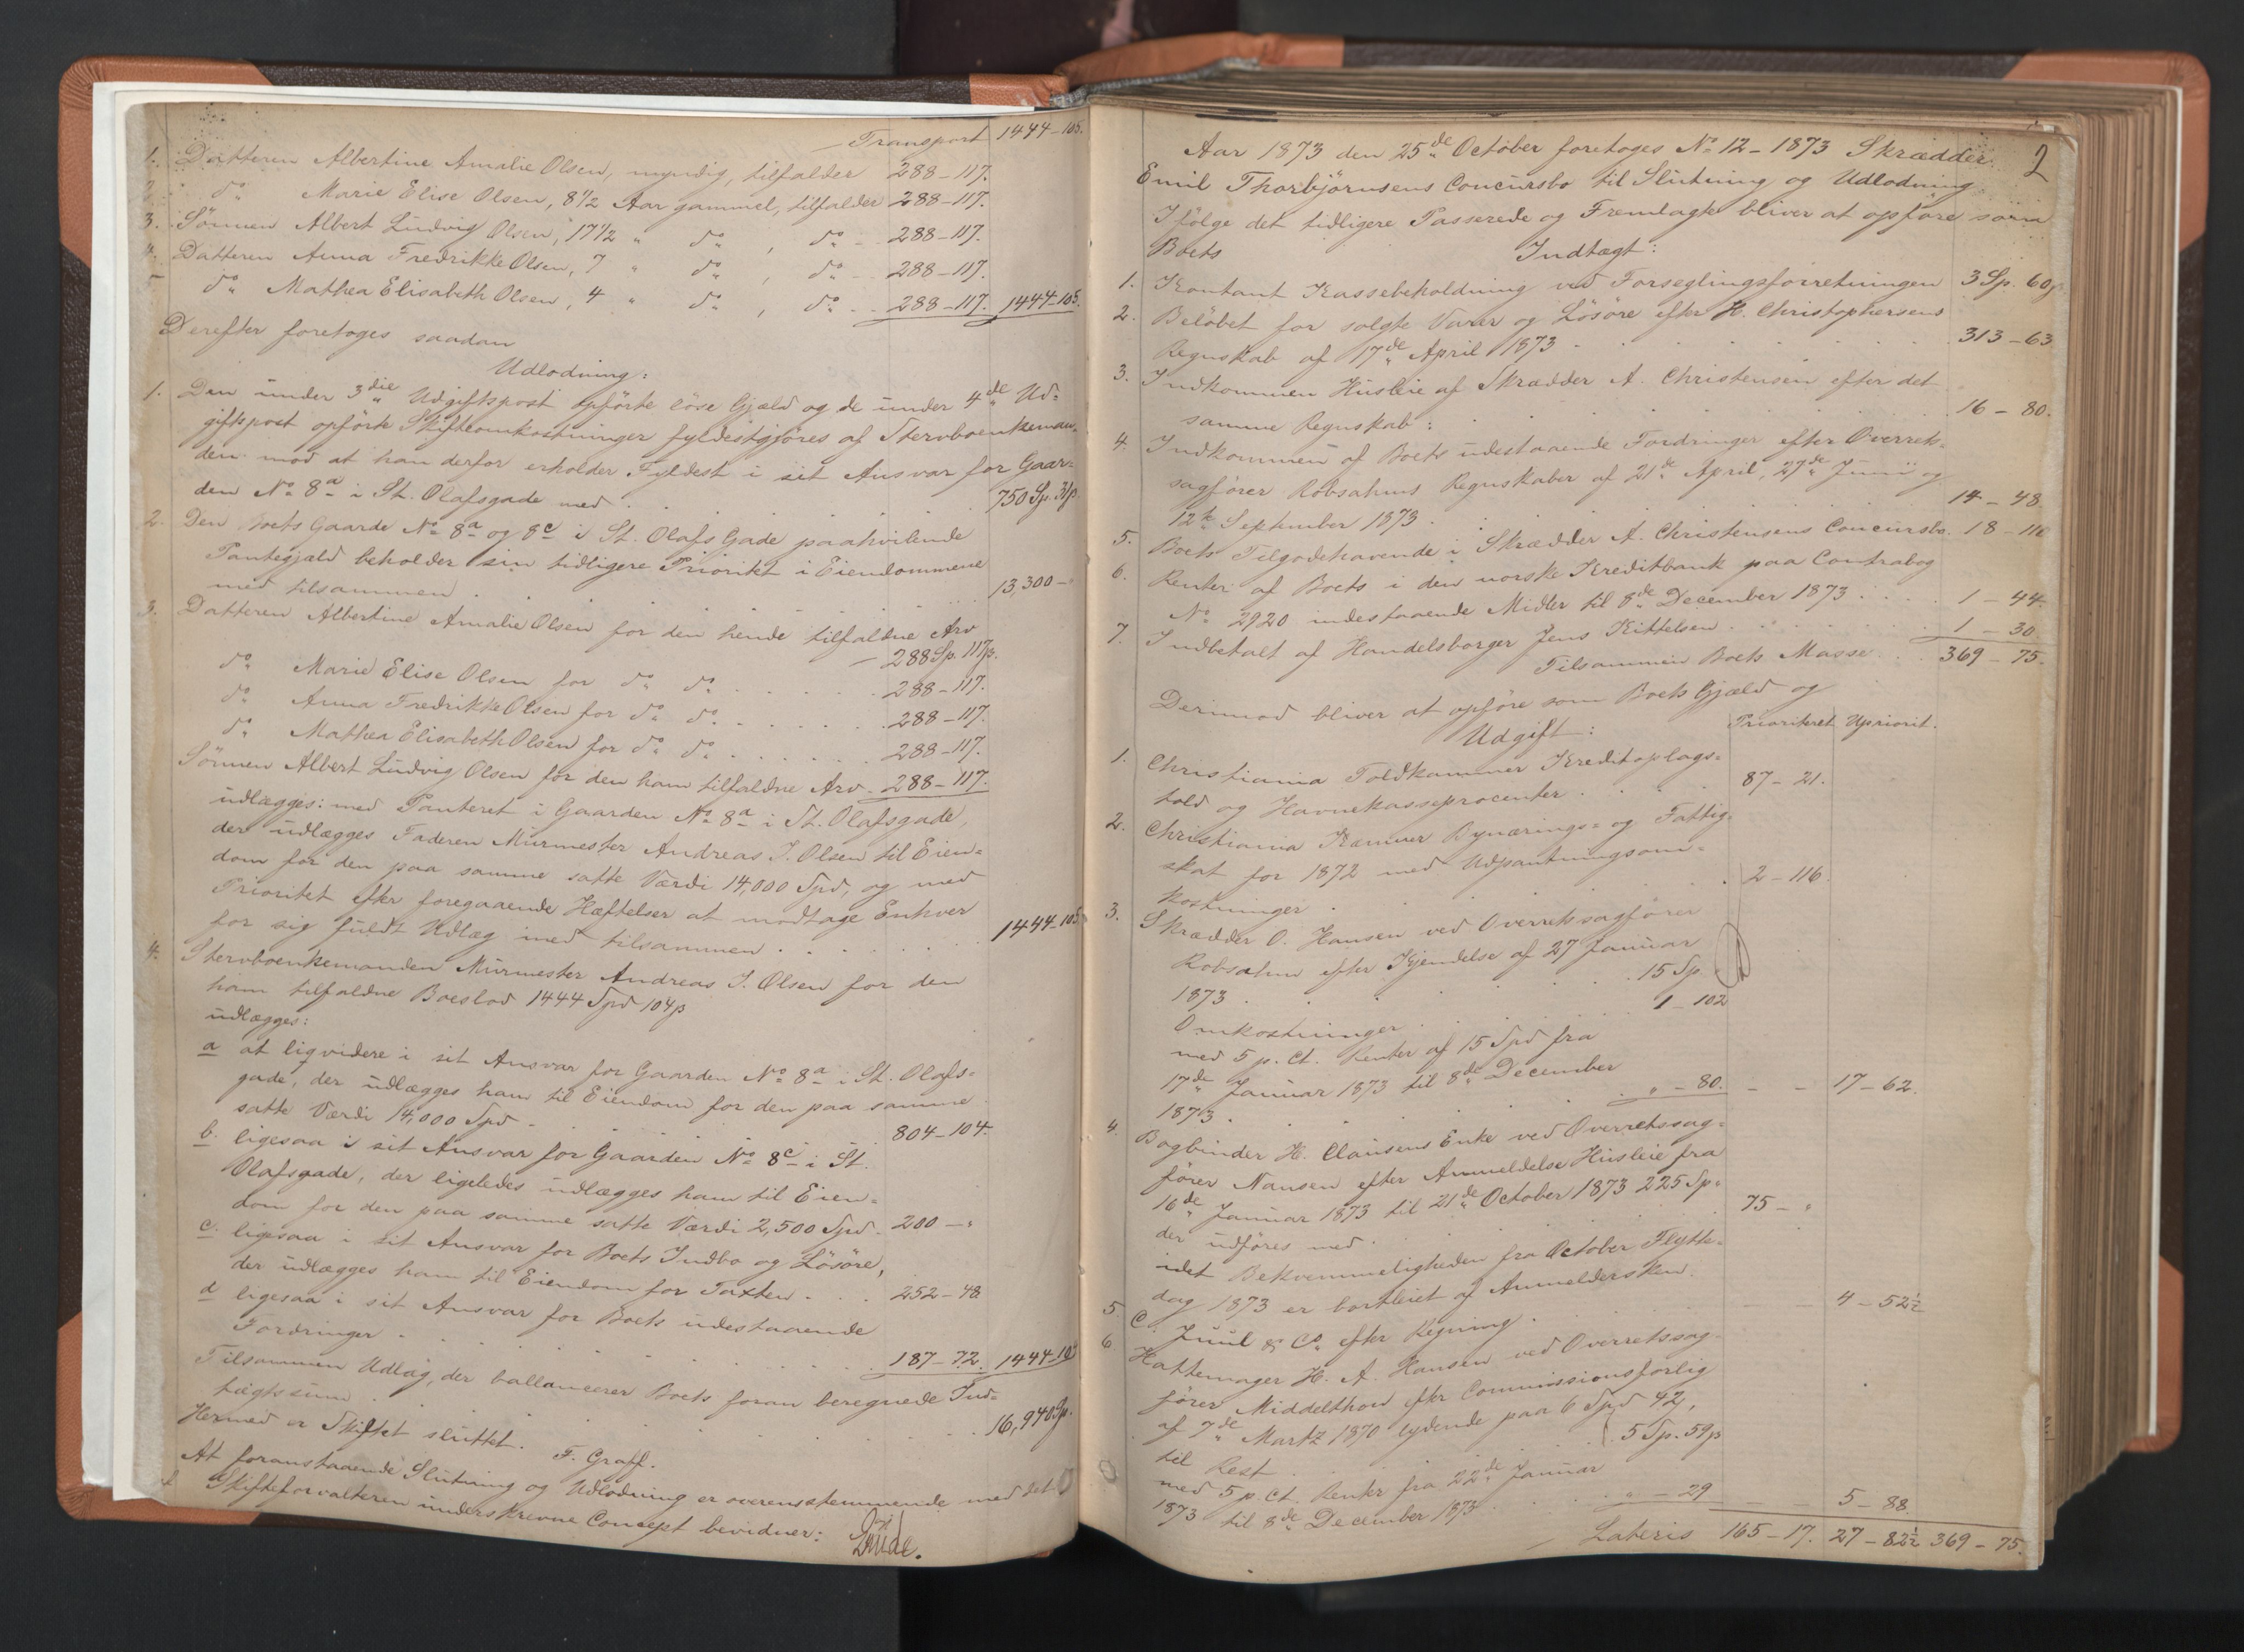 Transport 1444-105.
1. Datteren Albertine Amalie Olsen, myndig, tilfalder 288-117.
2. do Marie Elise Olsen, 8 1/2 Aar gammel, tilfalder 288-117.
3. Sönnen Albert Ludvig Olsen, 17 1/2 " do , do 288-117.
4. Datteren Anna Fredrikke Olsen, 7 " do , do 288-117.
5 do Mathea Elisabeth Olsen, 4 " do , do 288-117. 1444-105.
Derefter foretoges saadan
Udlodning:
1. Den under 3die Udgiftspost opförte löse Gjæld og de under 4de Ud-
giftspost opförte Skifteomkostninger fyldestgjöres af Stervboenkeman-
den mod at han derfor erholder Fyldest i sit Ansvar for Gaar-
den No 8a i St. Olafsgade med 750 Sp. 31 β
2. Den Boets Gaarde No 8a og 8c i St. Olafs Gade paahvilende
Pantegjæld beholder sin tidligere Prioritet i Eiendommene
med tilsammen 13,300 - "
3. Datteren Albertine Amalie Olsen for den hende tilfaldne Arv
288 Sp. 117 β.
do Marie Elise Olsen for do do 288-117.
do Anna Fredrikke Olsen for do do 288-117.
do Mathea Elisabeth Olsen for do do 288-117.
Sönnen Albert Ludvig Olsen for den ham tilfaldne Arv 288-117.
udlægges: med Panteret i Gaarden No 8a i St. Olafsgade,
der udlægges Faderen Murmester Andreas J. Olsen til Eien-
dom for den paa samme satte Værdi 14,000 Spd, og med
Prioritet efter foregaaende Hæftelser at modtage Enhver
for sig fuldt Udlæg med tilsammen 1444-105
4. Stervboenkemanden Murmester Andreas J. Olsen for den
ham tilfaldne Boeslod 1444 Spd 104 β
udlægges:
a at liqvidere i sit Ansvar for Gaarden No 8a i St. Olafs-
gade, der udlægges ham til Eiendom for den paa samme
satte Værdi 14,000 Spd 804-104.
b. ligesaa i sit Ansvar for Gaarden No 8c i St.
Olafsgade, der ligeledes udlægges ham til Eien-
dom for den paa samme satte Værdi 2,500 Spd 200 - "
c. ligesaa i sit Ansvar for Boets Indbo og Lösöre,
der udlægges ham til Eiendom for Taxten 252-48
d ligesaa i sit Ansvar for Boets udestaaende
Fordringer 187-72. 1444-104
Tilsammen Udlæg, der ballancerer Boets foran beregnede Ind-
tægtssum 16,940 Sp.
Hermed er Skiftet sluttet.
F. Graff.
At foranstaaende Slutning og Udlodning er overensstemmende med det
af Skifteforvalteren underskrevne Concept bevidner:
2
Aar 1873 den 25de October foretoges No 12-1873 Skrædder
Emil Thorbjörnsens Concursbo til Slutning og Udlodning.
Ifölge det tidligere Passerede og Fremlagte bliver at opföre som
Boets Indtægt:
1. Kontant Kassebeholdning ved Forseglingsforretningen 3 Sp. 60 β
2. Belöbet for solgte Varer og Lösöre efter H. Christophersens
Regnskab af 17de April 1873 313-63
3. Indkommen Husleie af Skrædder A. Christensen efter det
samme Regnskab: 16-80.
4. Indkommen af Boets udestaaende Fordringer efter Overrets-
sagförer Robsahms Regnskaber af 21de April, 27de Juni og
12te September 1873 14-48.
5. Boets Tilgodehavende i Skrædder A. Christensens Concursbo. 18-110
6. Renter af Boets i den norske Kreditbank paa Contrabog
No 2920 indestaaende Midler til 8de December 1873 1-44.
7. Indbetalt af Handelsborger Jens Kittelsen 1-30
Tilsammen Boets Masse 369-75.
Derimod bliver at opföre som Boets Gjæld og
Udgift: Prioriteret Upriorit.
1. Christiania Toldkammer Kreditoplags-
told og Havnekasseprocenter 87-21.
2. Christiania Kæmner Bynærings- og Fattig-
skat for 1872 med Udpantningsom-
kostninger 2-116.
3. Skrædder O. Hansen ved Overretssagförer
Robsahm efter Kjendelse af 27 Januar
1873 15 Sp.
Omkostninger 1-102
med 5 p. Ct. Renter af 15 Spd fra
17de Januar 1873 til 8de December
1873 " - 80. 17-62.
4. Bogbinder H. Clausens Enke ved Overretssag-
förer Nansen efter Anmeldelse Husleie fra
16de Januar 1873 til 21de October 1873 225 Sp.
der udföres med 75 - "
idet Bekvemmeligheden fra October Flytte-
dag 1873 er bortleiet af Anmeldersken.
5. C. Juul & Co efter Regning 4-52 1/2
6. Hattemager H. A. Hansen ved Overretssag-
förer Middelthon efter Commissionsforlig
af 7de Martz 1870 lydende paa 6 Spd 42,
til Rest 5 Sp. 59 β
med 5 p. Ct. Renter fra 22de Januar
1873 til 8de December 1873 " - 29 5-88.
Lateris 165-17. 27-82 1/2 369-75.